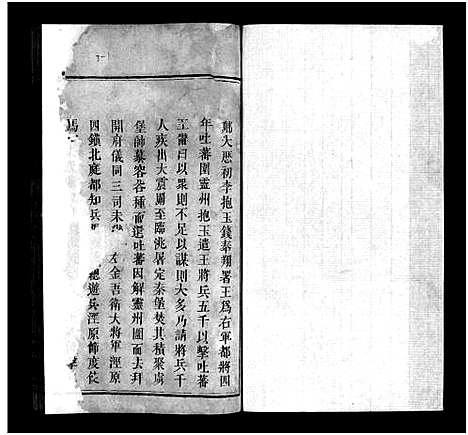 鄭大愍初李抱玉鎮奉翔署王爲右軍都將四
年吐蕃圍靈州抱玉遣王將兵五千以擊吐蕃
王嘗曰以衆則不足以謀則大多乃請將兵千
人疾出大震關至臨洮屠定秦堡焚其積聚虜
堡帥慕容谷種而還吐蕃因解靈州圍而去拜
開府儀同三司未 金吾衛大將軍涇原
四鎮北庭都知兵 總遊兵涇原節度使
馬